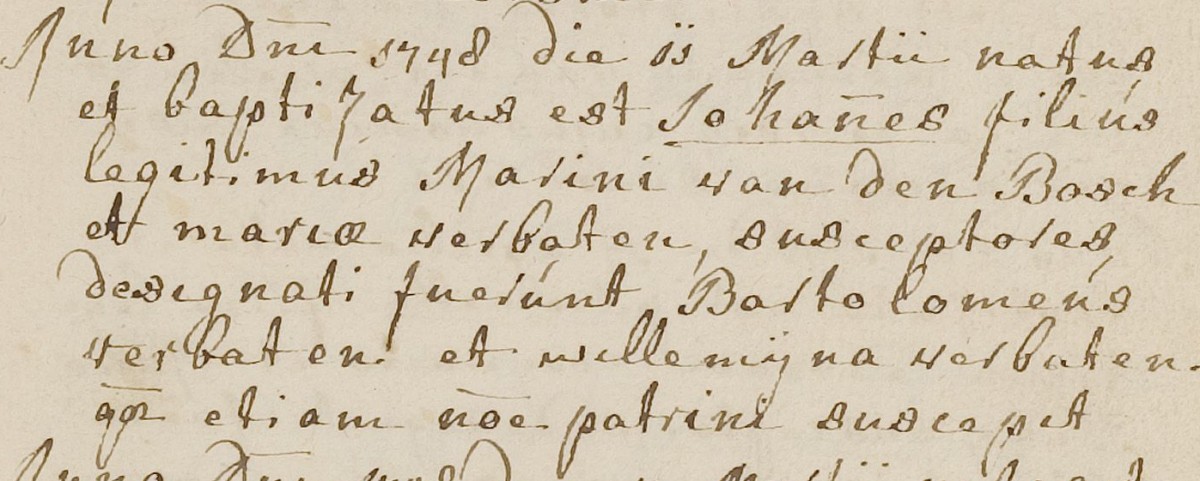 Anno Dm̄ 1748 die ii Martii natus
et baptizatus est Johan̄es filius
legitimus Marini van den Bosch
et mariæ verbaten, susceptores
designati fuerunt Bartolomeus
verbaten et willemijna verbaten.
etiam nōe patrini suscepit
Anno Dm̄